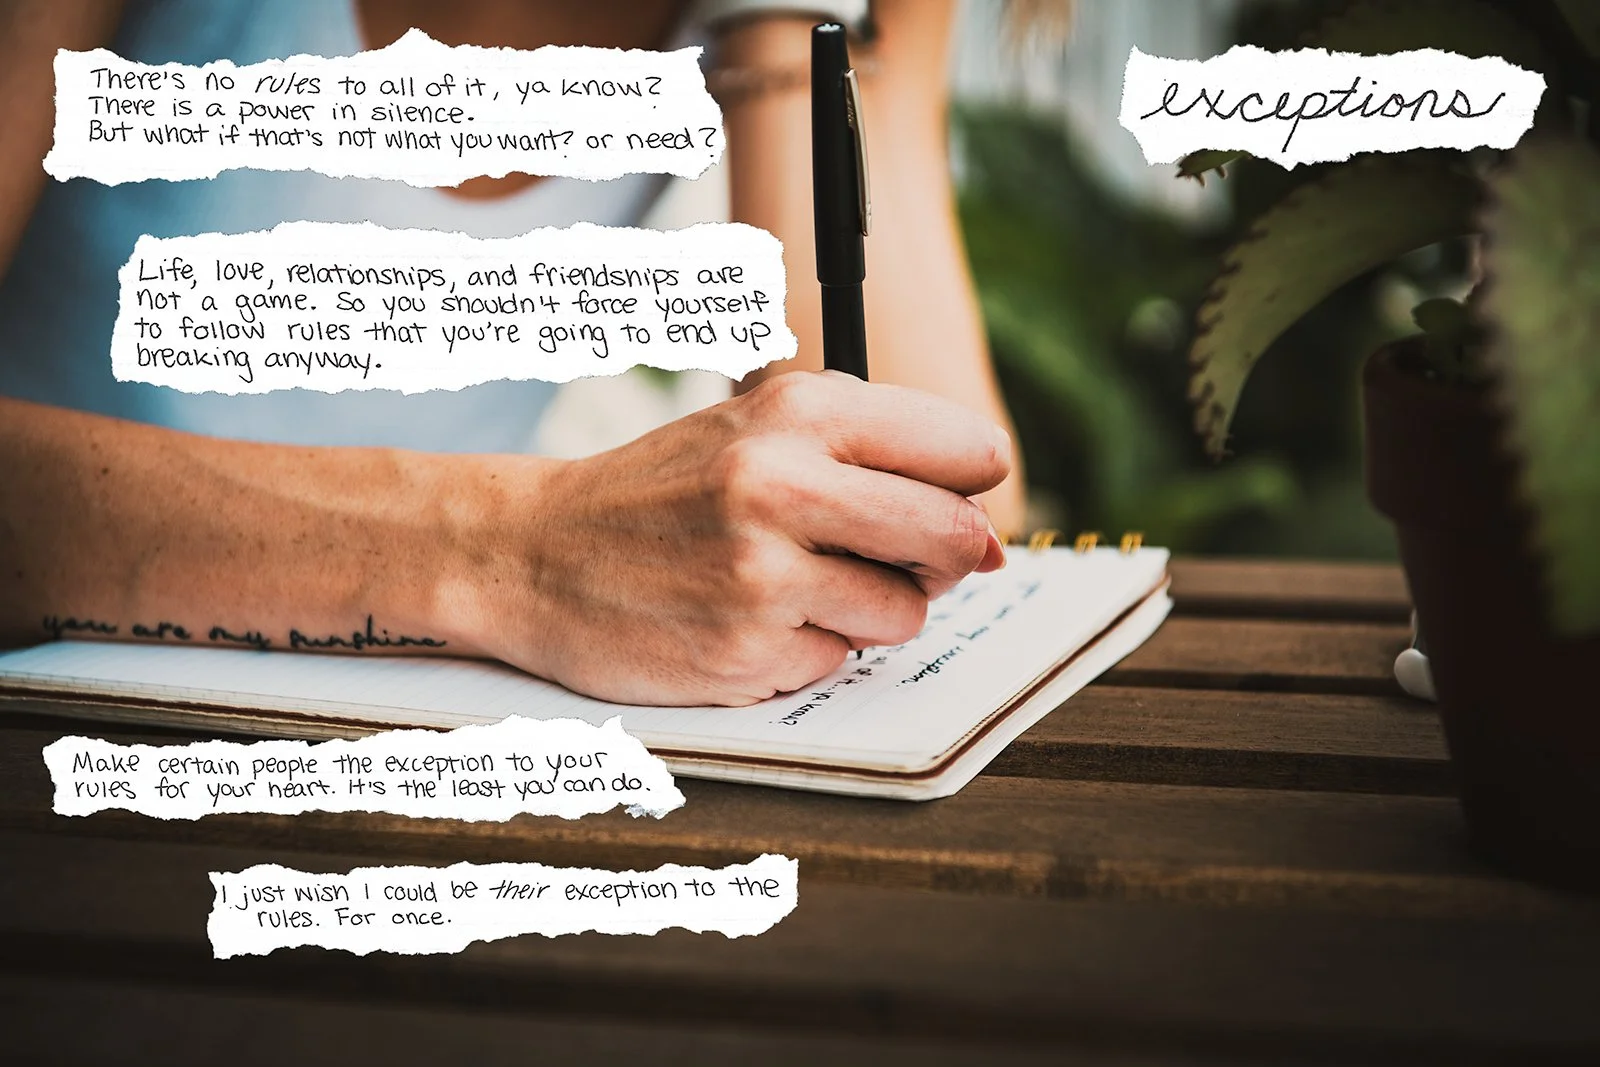 There's no rules to all of it, ya know?
There is a power in silence.
But what if that's not what you want? or need?
exceptions
Life, love, relationships, and friendships are
not a game. So you shouldn't force yourself
to follow rules that you're going to end up
breaking anyway.
you are my sunshine
all of it.. ya know?
Make certain people the exception to your
rules for your heart. It's the least you can do.
I just wish I could be their exception to the
rules. For once.